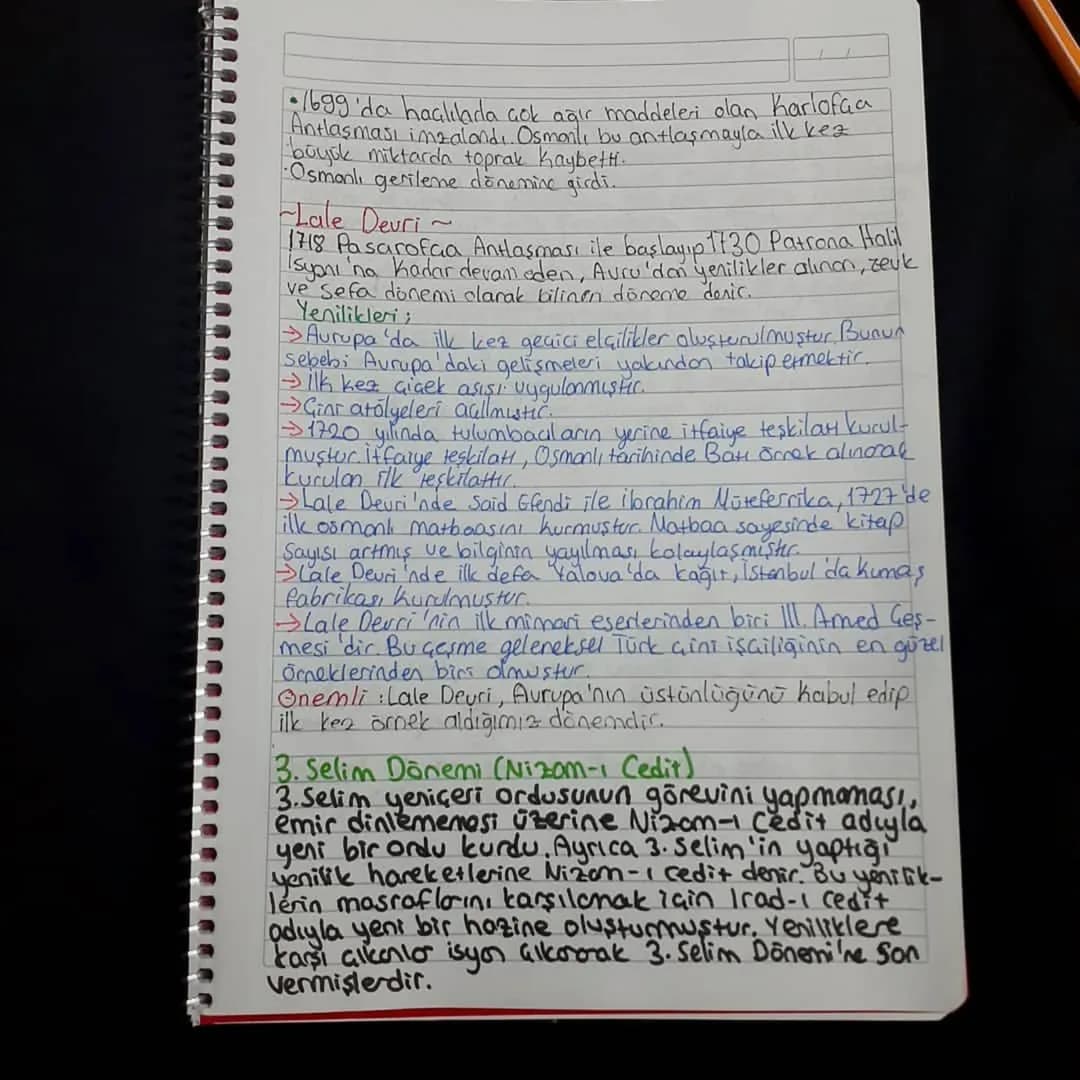 / /
•1699'da haçlılada çok ağır maddeleri olan Karlofça
Antlaşması imzalandı. Osmanlı bu antlaşmayla ilk kez
büyük miktarda toprak kaybetti.
·Osmanlı gerileme dönemine girdi.
~Lale Devri~
1718 Pasarofça Antlaşması ile başlayıp 1730 Patrona Halil
İsyanı'na kadar devam eden, Avru'dan yenilikler alınan, zevk
ve sefa dönemi olarak bilinen döneme denir.
Yenilikleri;
→Avrupa'da ilk kez geçici elçilikler oluşturulmuştur. Bunun
sebebi Avrupa'daki gelişmeleri yakından takip etmektir.
→İlk kez çiçek aşısı uygulanmıştır.
→Çini atölyeleri açılmıştır.
→1720 yılında tulumbacıların yerine itfaiye teşkilatı kurul-
muştur. İtfaiye teşkilatı, Osmanlı tarihinde Batı örnek alınarak
kurulan ilk teşkilattır.
→Lale Devri'nde Said Efendi ile İbrahim Müteferrika, 1727'de
ilk osmanlı matbaasını kurmuştur. Matbaa sayesinde kitap
sayısı artmış ve bilginin yayılması kolaylaşmıştır.
→Lale Devri'nde ilk defa Yalova'da kağıt, İstanbul'da kumaş
fabrikası kurulmuştur.
→Lale Devri'nin ilk mimari eserlerinden biri III. Amed Çeş-
mesi'dir. Bu çeşme geleneksel Türk çini işçiliğinin en güzel
örneklerinden biri olmuştur.
Önemli : Lale Devri, Avrupa'nın üstünlüğünü kabul edip
ilk kez örnek aldığımız dönemdir.
3. Selim Dönemi (Nizam-ı Cedit)
3. Selim yeniçeri ordusunun görevini yapmaması,
emir dinlememesi üzerine Nizam-ı Cedit adıyla
yeni bir ordu kurdu. Ayrıca 3. Selim'in yaptığı
yenilik hareketlerine Nizam-ı Cedit denir. Bu yenilik-
lerin masraflarını karşılamak için Irad-ı Cedit
adıyla yeni bir hazine oluşturmuştur. Yeniliklere
karşı çıkanlar isyan çıkararak 3. Selim Dönemi'ne son
vermişlerdir.